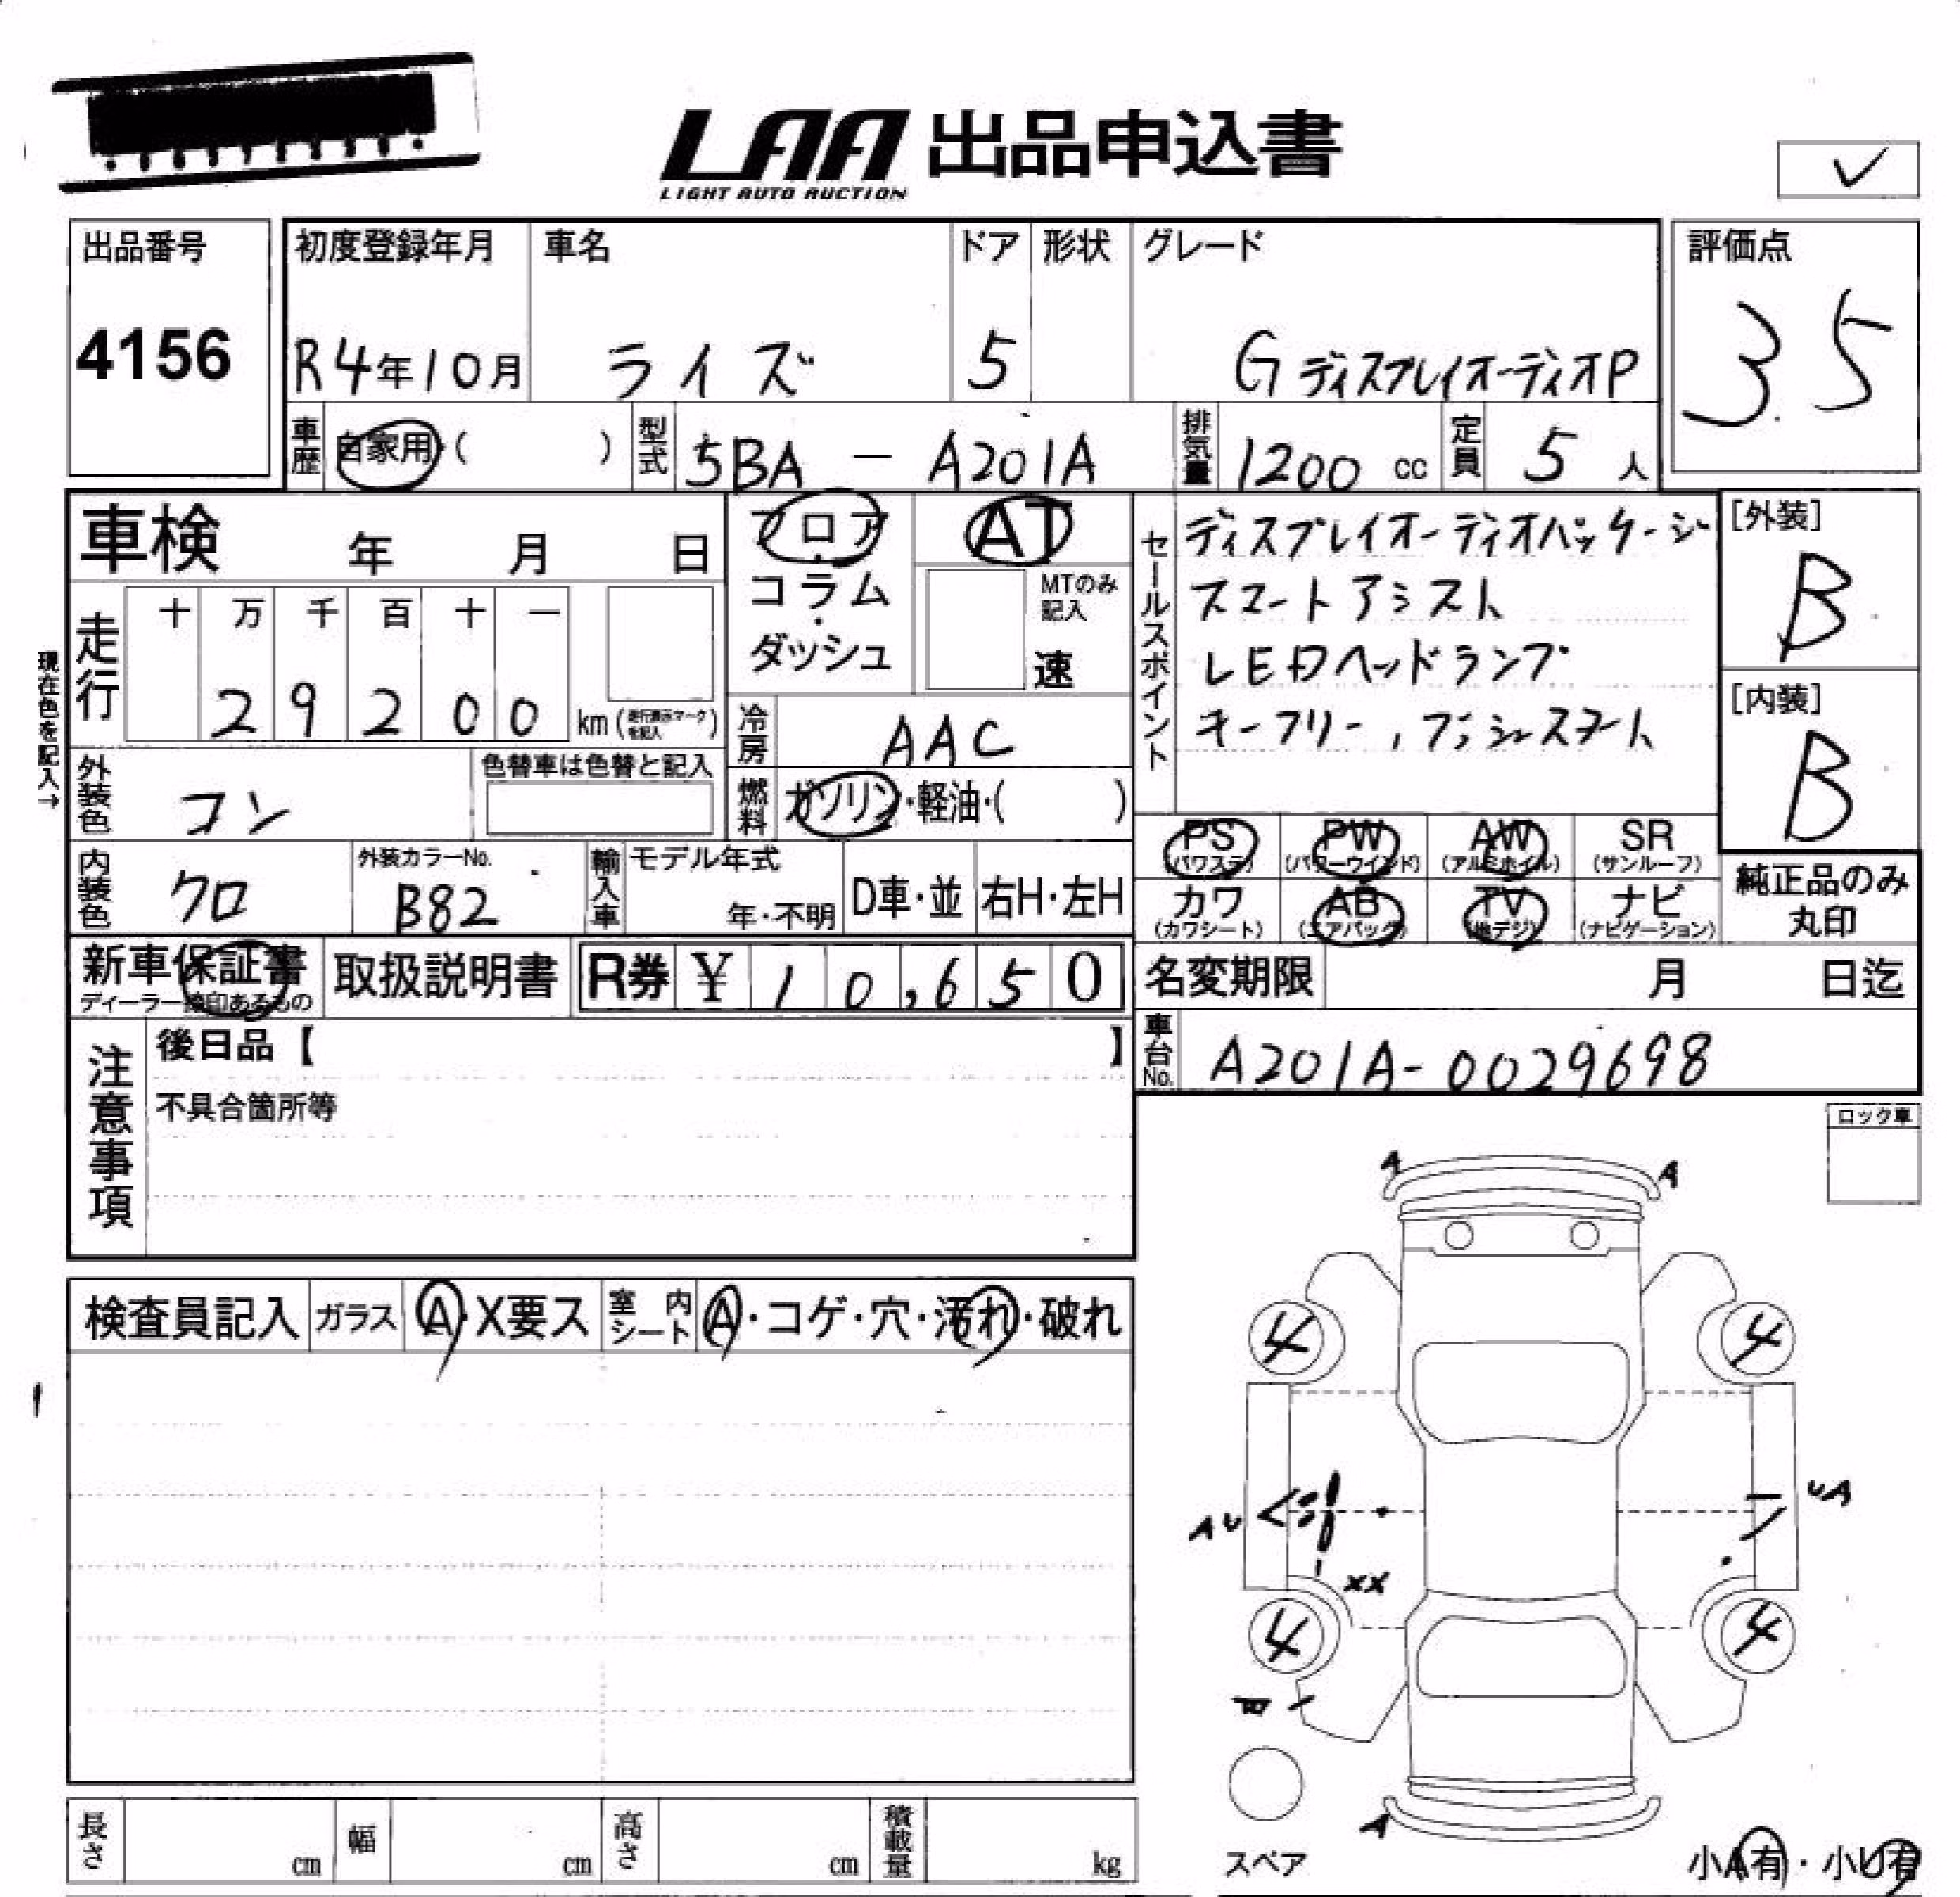 LAA 出品申込書
LIGHT AUTO AUCTION
✓
出品番号
4156
初度登録年月
R4年10月
車名
ライズ
ドア
5
形状
グレード
G ディスプレイオーディオP
評価点
3.5
車歴
自家用・( )
型式
5BA - A201A
排気量
1200 cc
定員
5 人
車検 年 月 日
フロア・コラム・ダッシュ
AT
MTのみ記入
速
セールスポイント
ディスプレイオーディオパッケージ
スマートアシスト
LEDヘッドランプ
キーフリー,プッシュスタート
[外装]
B
[内装]
B
現在色を記入→
走行
十 万 千 百 十 一
2 9 2 0 0 km (走行表示マークを記入)
冷房
AAC
外装色
コン
色替車は色替と記入
燃料
ガソリン・軽油・( )
PS (パワステ)
PW (パワーウインド)
AW (アルミホイル)
SR (サンルーフ)
内装色
クロ
外装カラーNo.
B82
輸入車
モデル年式
年・不明
D車・並
右H・左H
カワ (カワシート)
AB (エアバッグ)
TV (地デジ)
ナビ (ナビゲーション)
純正品のみ丸印
新車保証書
ディーラー捺印あるもの
取扱説明書
R券 ¥ 10,650
名変期限 月 日迄
車台No.
A201A-0029698
注意事項
後日品【 】
不具合箇所等
ロック車
検査員記入
ガラス
A・X要ス
室内シート
A・コゲ・穴・汚れ・破れ
A
A
4
4
AU
UA
XX
4
4
A
スペア
小A有・小U有
長さ cm
幅 cm
高さ cm
積載量 kg